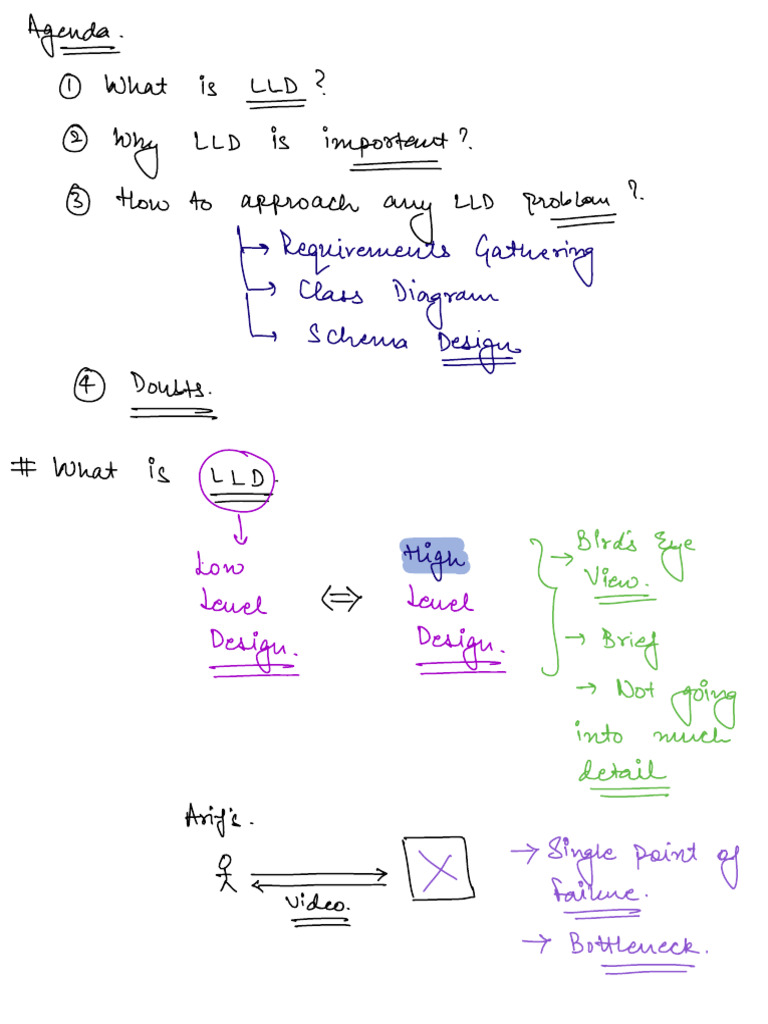 Agenda.
① What is LLD?
② Why LLD is important?
③ How to approach any LLD problem?
→ Requirements Gathering
→ Class Diagram
→ Schema Design
④ Doubts.
# What is LLD.
Low
Level
Design.
⇔
High
Level
Design.
→ Bird's Eye
View.
→ Brief
→ Not going
into much
detail
Arif's.
Video.
X
→ Single point of
failure.
→ Bottleneck.